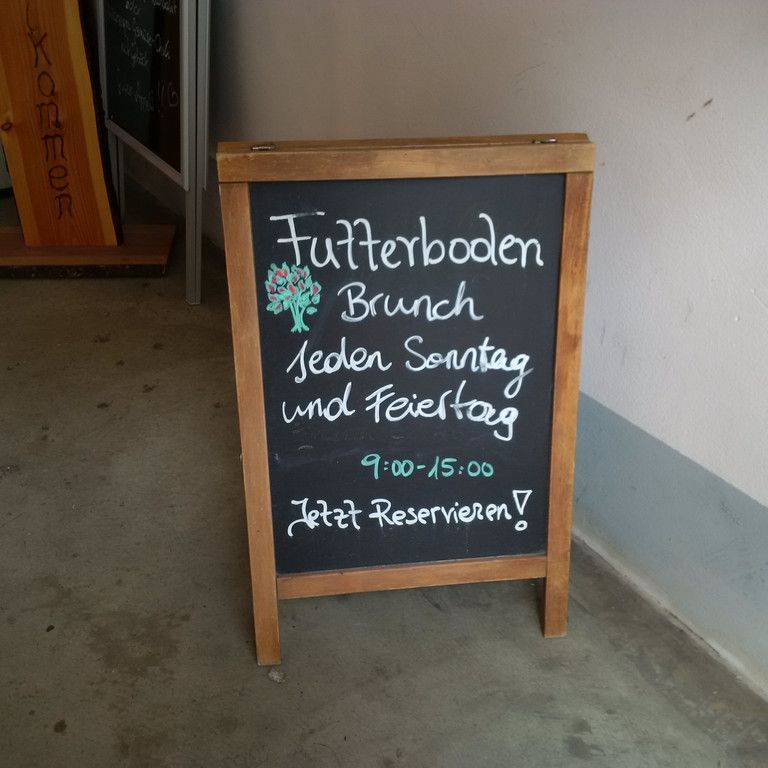 lkommen
Futterboden
Brunch
Jeden Sonntag
und Feiertag
9:00-15:00
Jetzt Reservieren!